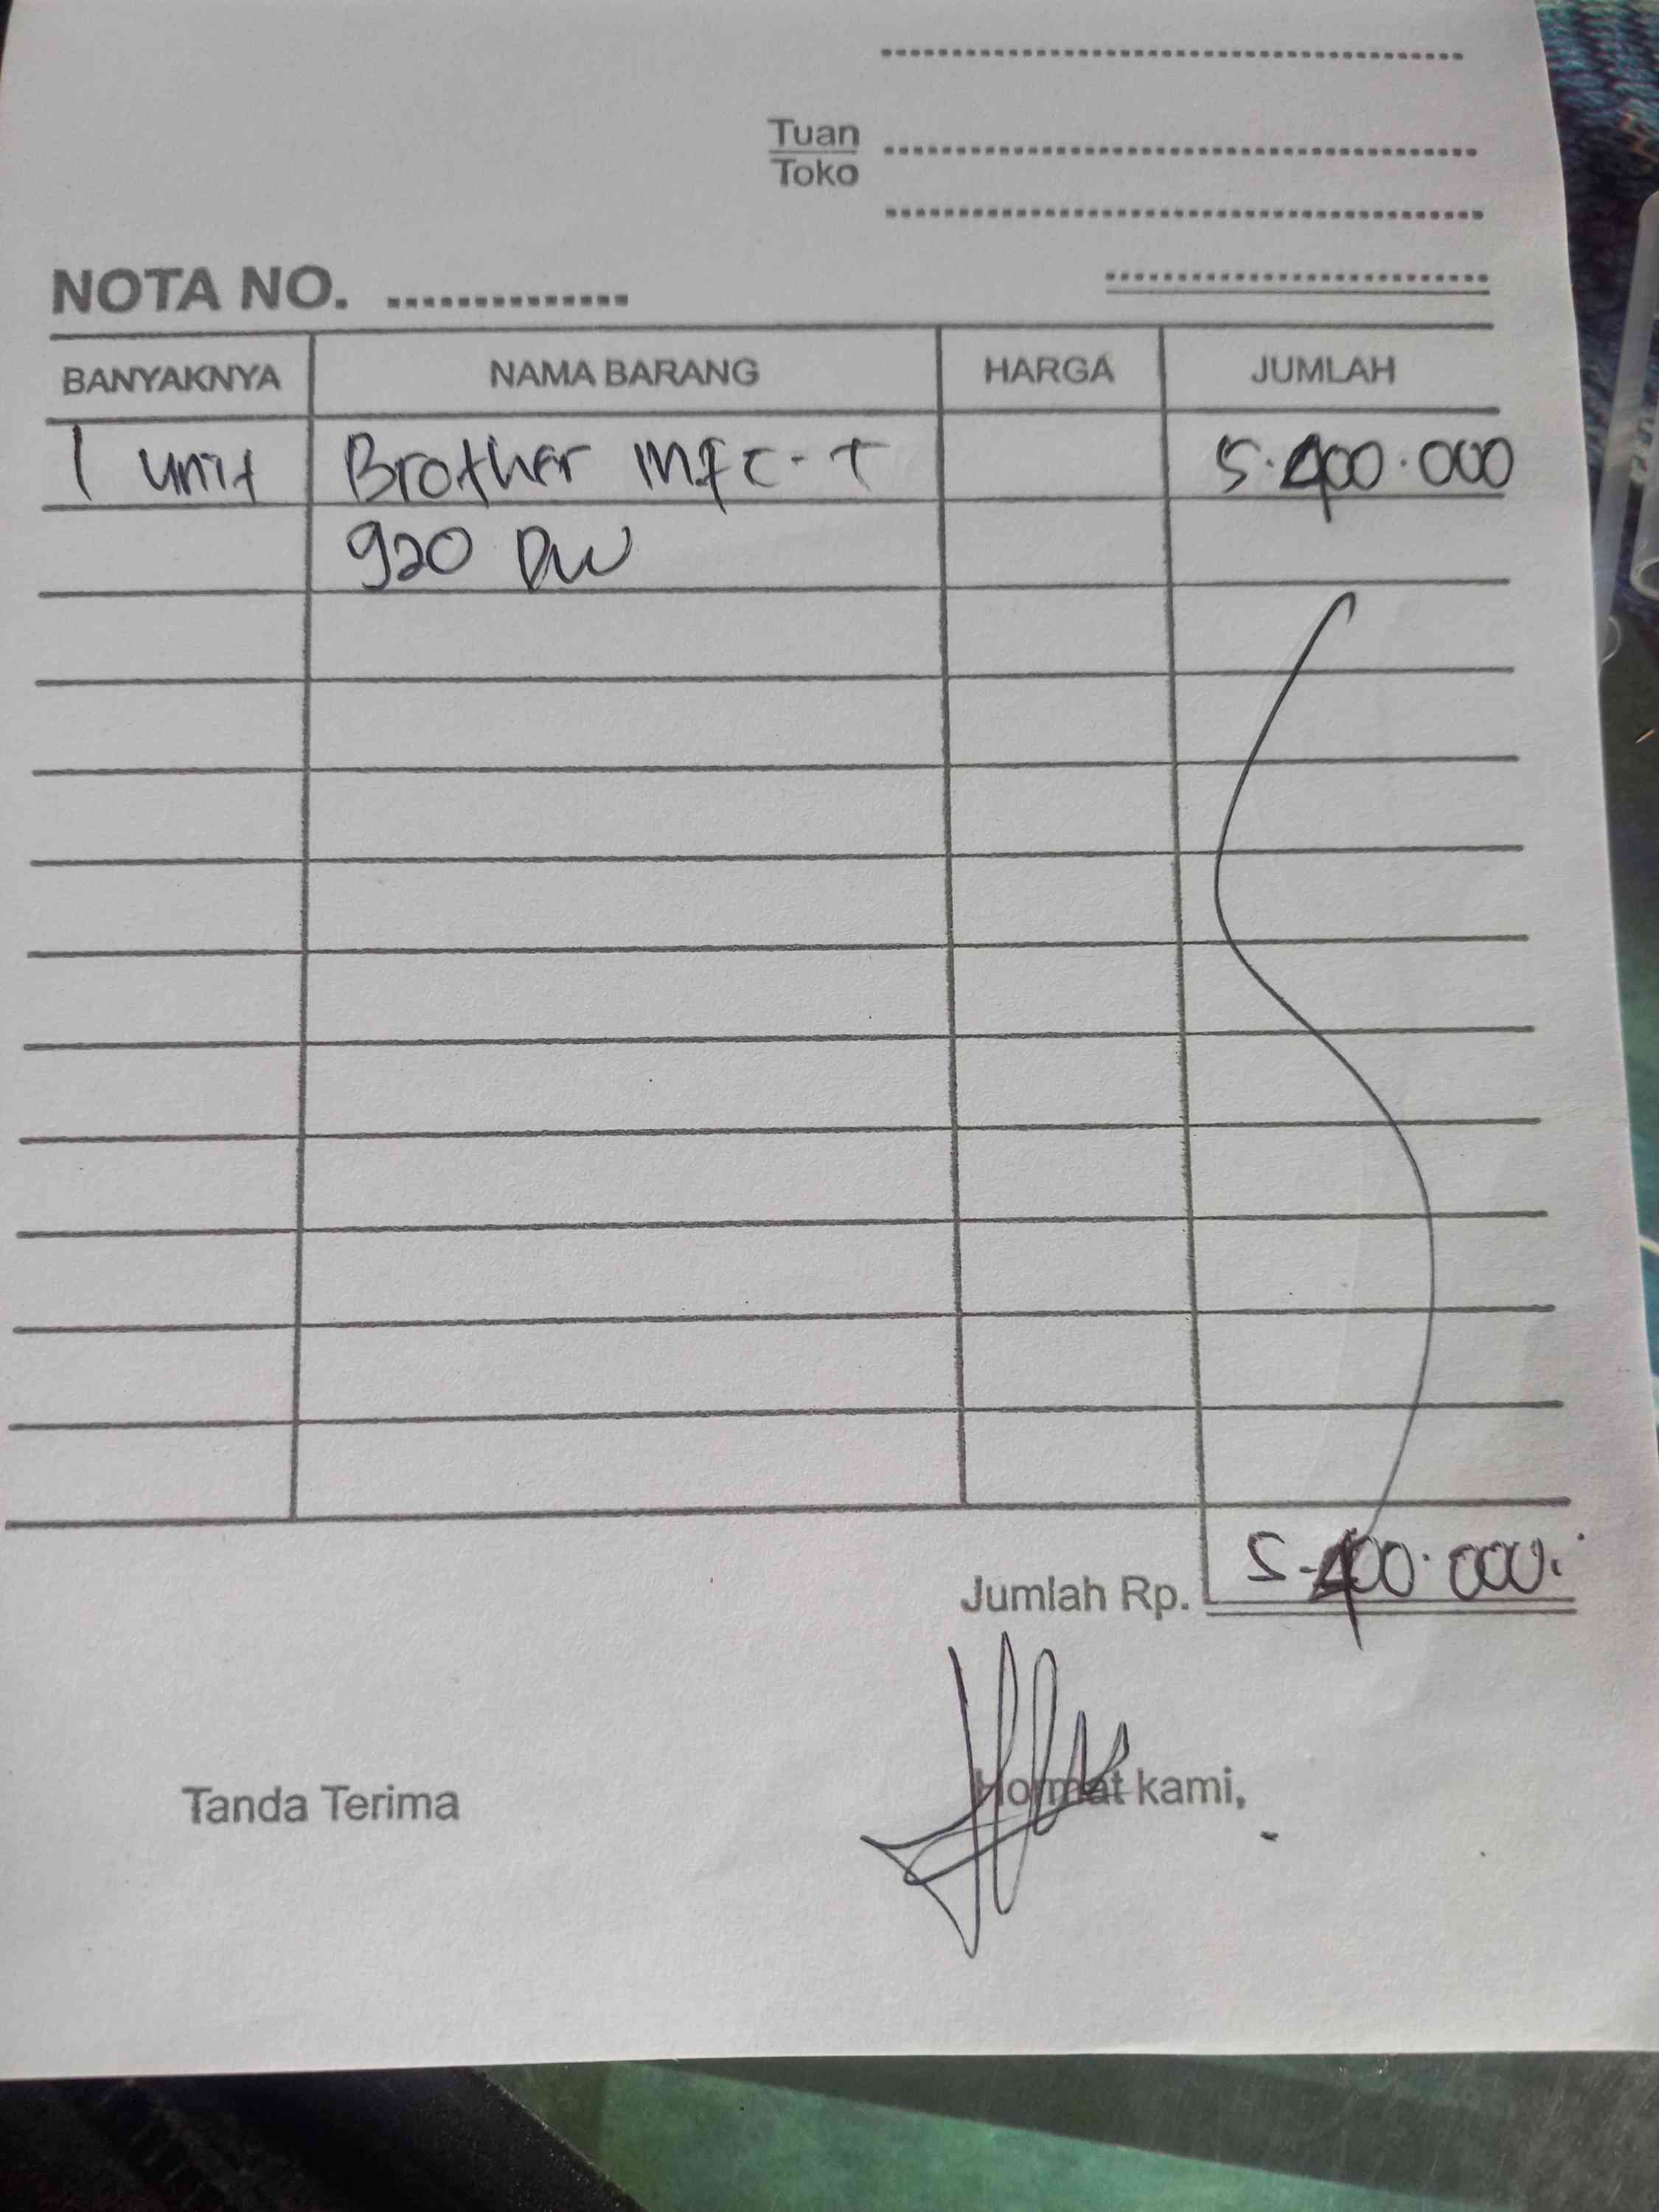 Tuan
Toko
NOTA NO.
BANYAKNYA NAMA BARANG HARGA JUMLAH
1 unit Brother mfc-T 5.400.000
920 DW
Jumlah Rp. 5.400.000.
Tanda Terima Hormat kami,